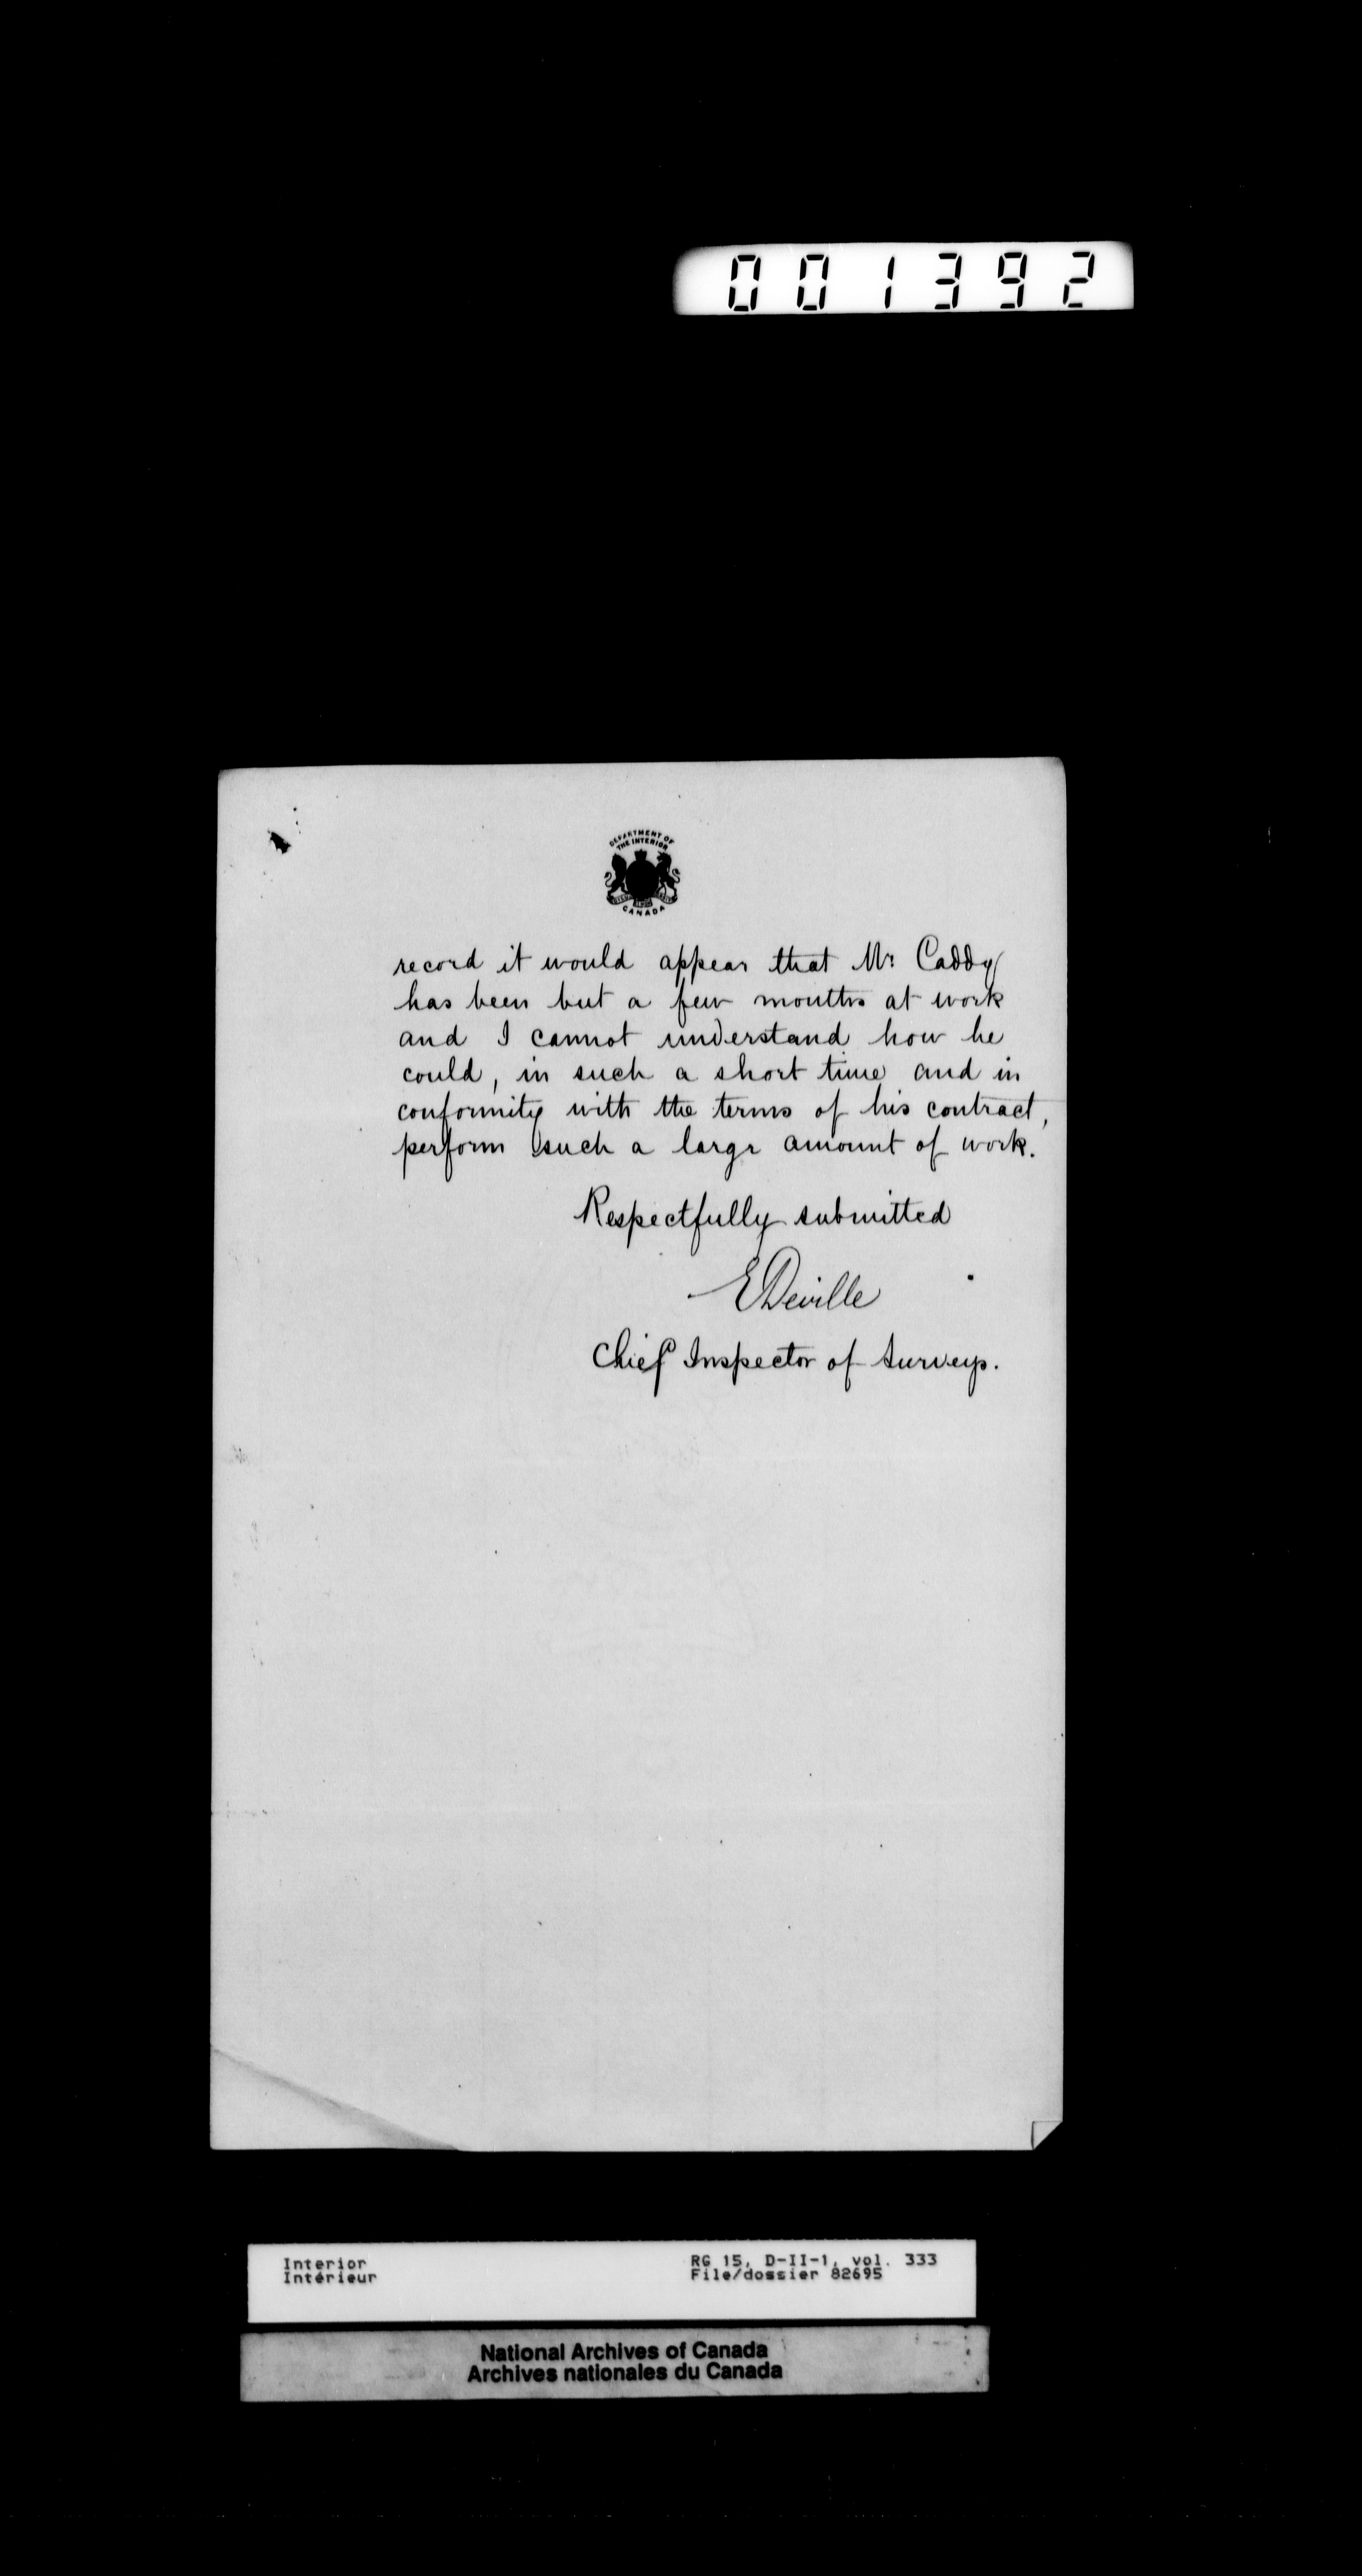 001392
DEPARTMENT OF
THE INTERIOR
CANADA
record it would appear that Mr Caddy
has been but a few months at work
and I cannot understand how he
could, in such a short time and in
conformity with the terms of his contract,
perform such a large amount of work.
Respectfully submitted
E Deville
Chief Inspector of Surveys.
Interior
Intérieur
RG 15, D-II-1, vol. 333
File/dossier 82695
National Archives of Canada
Archives nationales du Canada